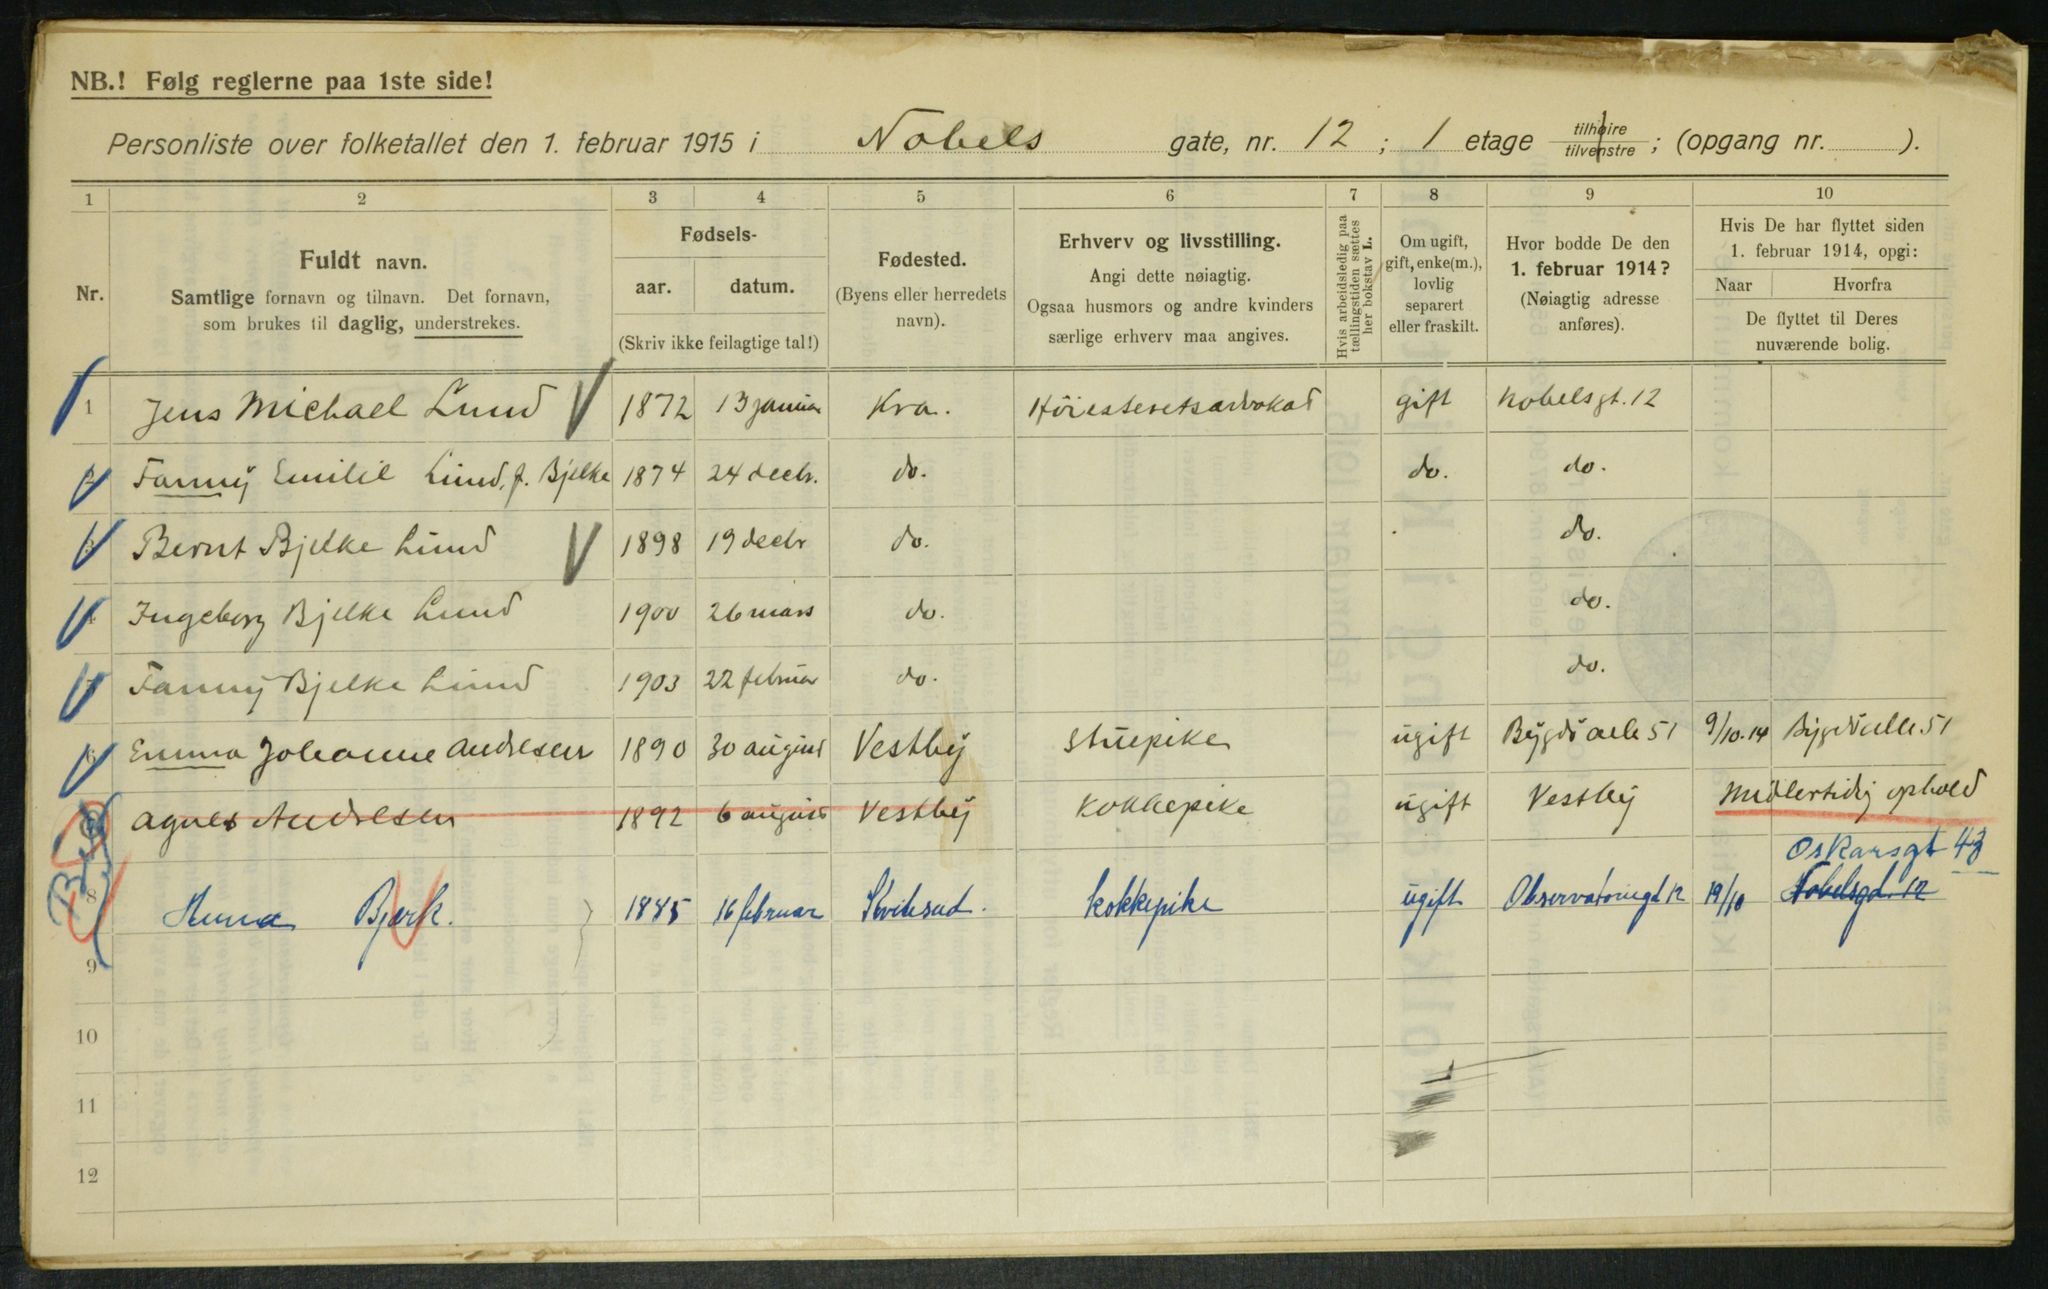 NB.! Følg reglerne paa 1ste side!
Personliste over folketallet den 1. februar 1915 i Nobels gate, nr. 12 ; 1 etage tilhøire tilvenstre ; (opgang nr. ).
1 2 3 4 5 6 7 8 9 10
Nr.
Fuldt navn.
Samtlige fornavn og tilnavn. Det fornavn,
som brukes til daglig, understrekes.
Fødsels-
aar. datum.
(Skriv ikke feilagtige tal!)
Fødested.
(Byens eller herredets
navn).
Erhverv og livsstilling.
Angi dette nøiagtig.
Ogsaa husmors og andre kvinders
særlige erhverv maa angives.
Hvis arbeidsledig paa
tællingstiden sættes
her bokstav L.
Om ugift,
gift, enke(m.),
lovlig
separert
eller fraskilt.
Hvor bodde De den
1. februar 1914?
(Nøiagtig adresse
anføres).
Hvis De har flyttet siden
1. februar 1914, opgi:
Naar Hvorfra
De flyttet til Deres
nuværende bolig.
1 Jens Michael Lund 1872 13 januar Kra. Høiesteretsadvokat gift Nobelsgt. 12
2 Fanny Emilie Lund, f. Bjelke 1874 24 decbr. do. do. do.
3 Bernt Bjelke Lund 1898 19 decbr do. do.
4 Ingeborg Bjelke Lund 1900 26 mars do. do.
Fanny Bjelke Lund 1903 22 februar do. do.
6 Emma Johanne Andresen 1890 30 august Vestby Stuepike ugift Bygdö alle 51 9/10.14 Bygdö alle 51
Agnes Andresen 1892 6 august Vestby Kokkepike ugift Vestby Midlertidig ophold
Oskarsgt 43
8 Bjørk. 1885 16 februar Kviteseid. kokkepike ugift Observatoriegt 12 19/10 Nobelsgt. 12
9
10
11
12